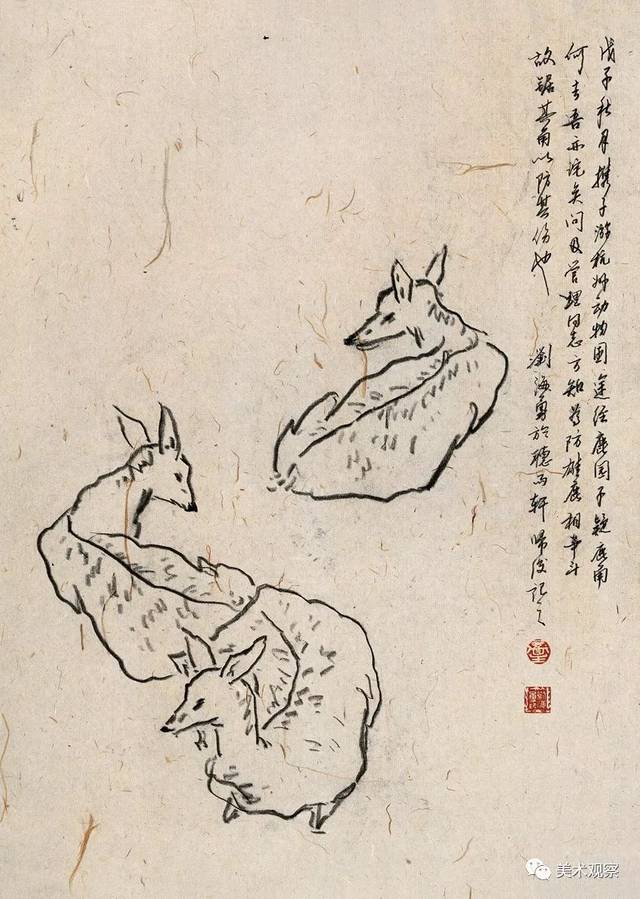 戊子秋月携子游杭州动物园途径鹿园子疑鹿角
何去吾亦诧矣问及管理同志方知为防雄鹿相争斗
故锯其角以防其伤也
刘海勇於听雨轩归后记之
美术观察